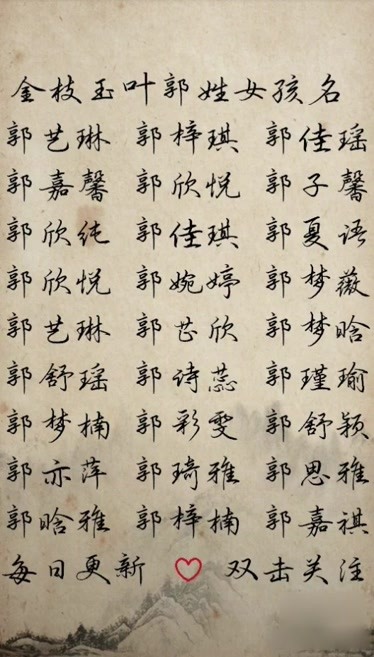 金枝玉叶郭姓女孩名
郭艺琳 郭梓琪 郭佳瑶
郭嘉馨 郭欣悦 郭子馨
郭欣纯 郭佳琪 郭夏语
郭欣悦 郭婉婷 郭梦薇
郭艺琳 郭芷欣 郭梦晗
郭舒瑶 郭诗蕊 郭瑾瑜
郭梦楠 郭彩雯 郭舒颖
郭亦萍 郭琦雅 郭思雅
郭晗雅 郭梓楠 郭嘉祺
每日更新 ♡ 双击关注